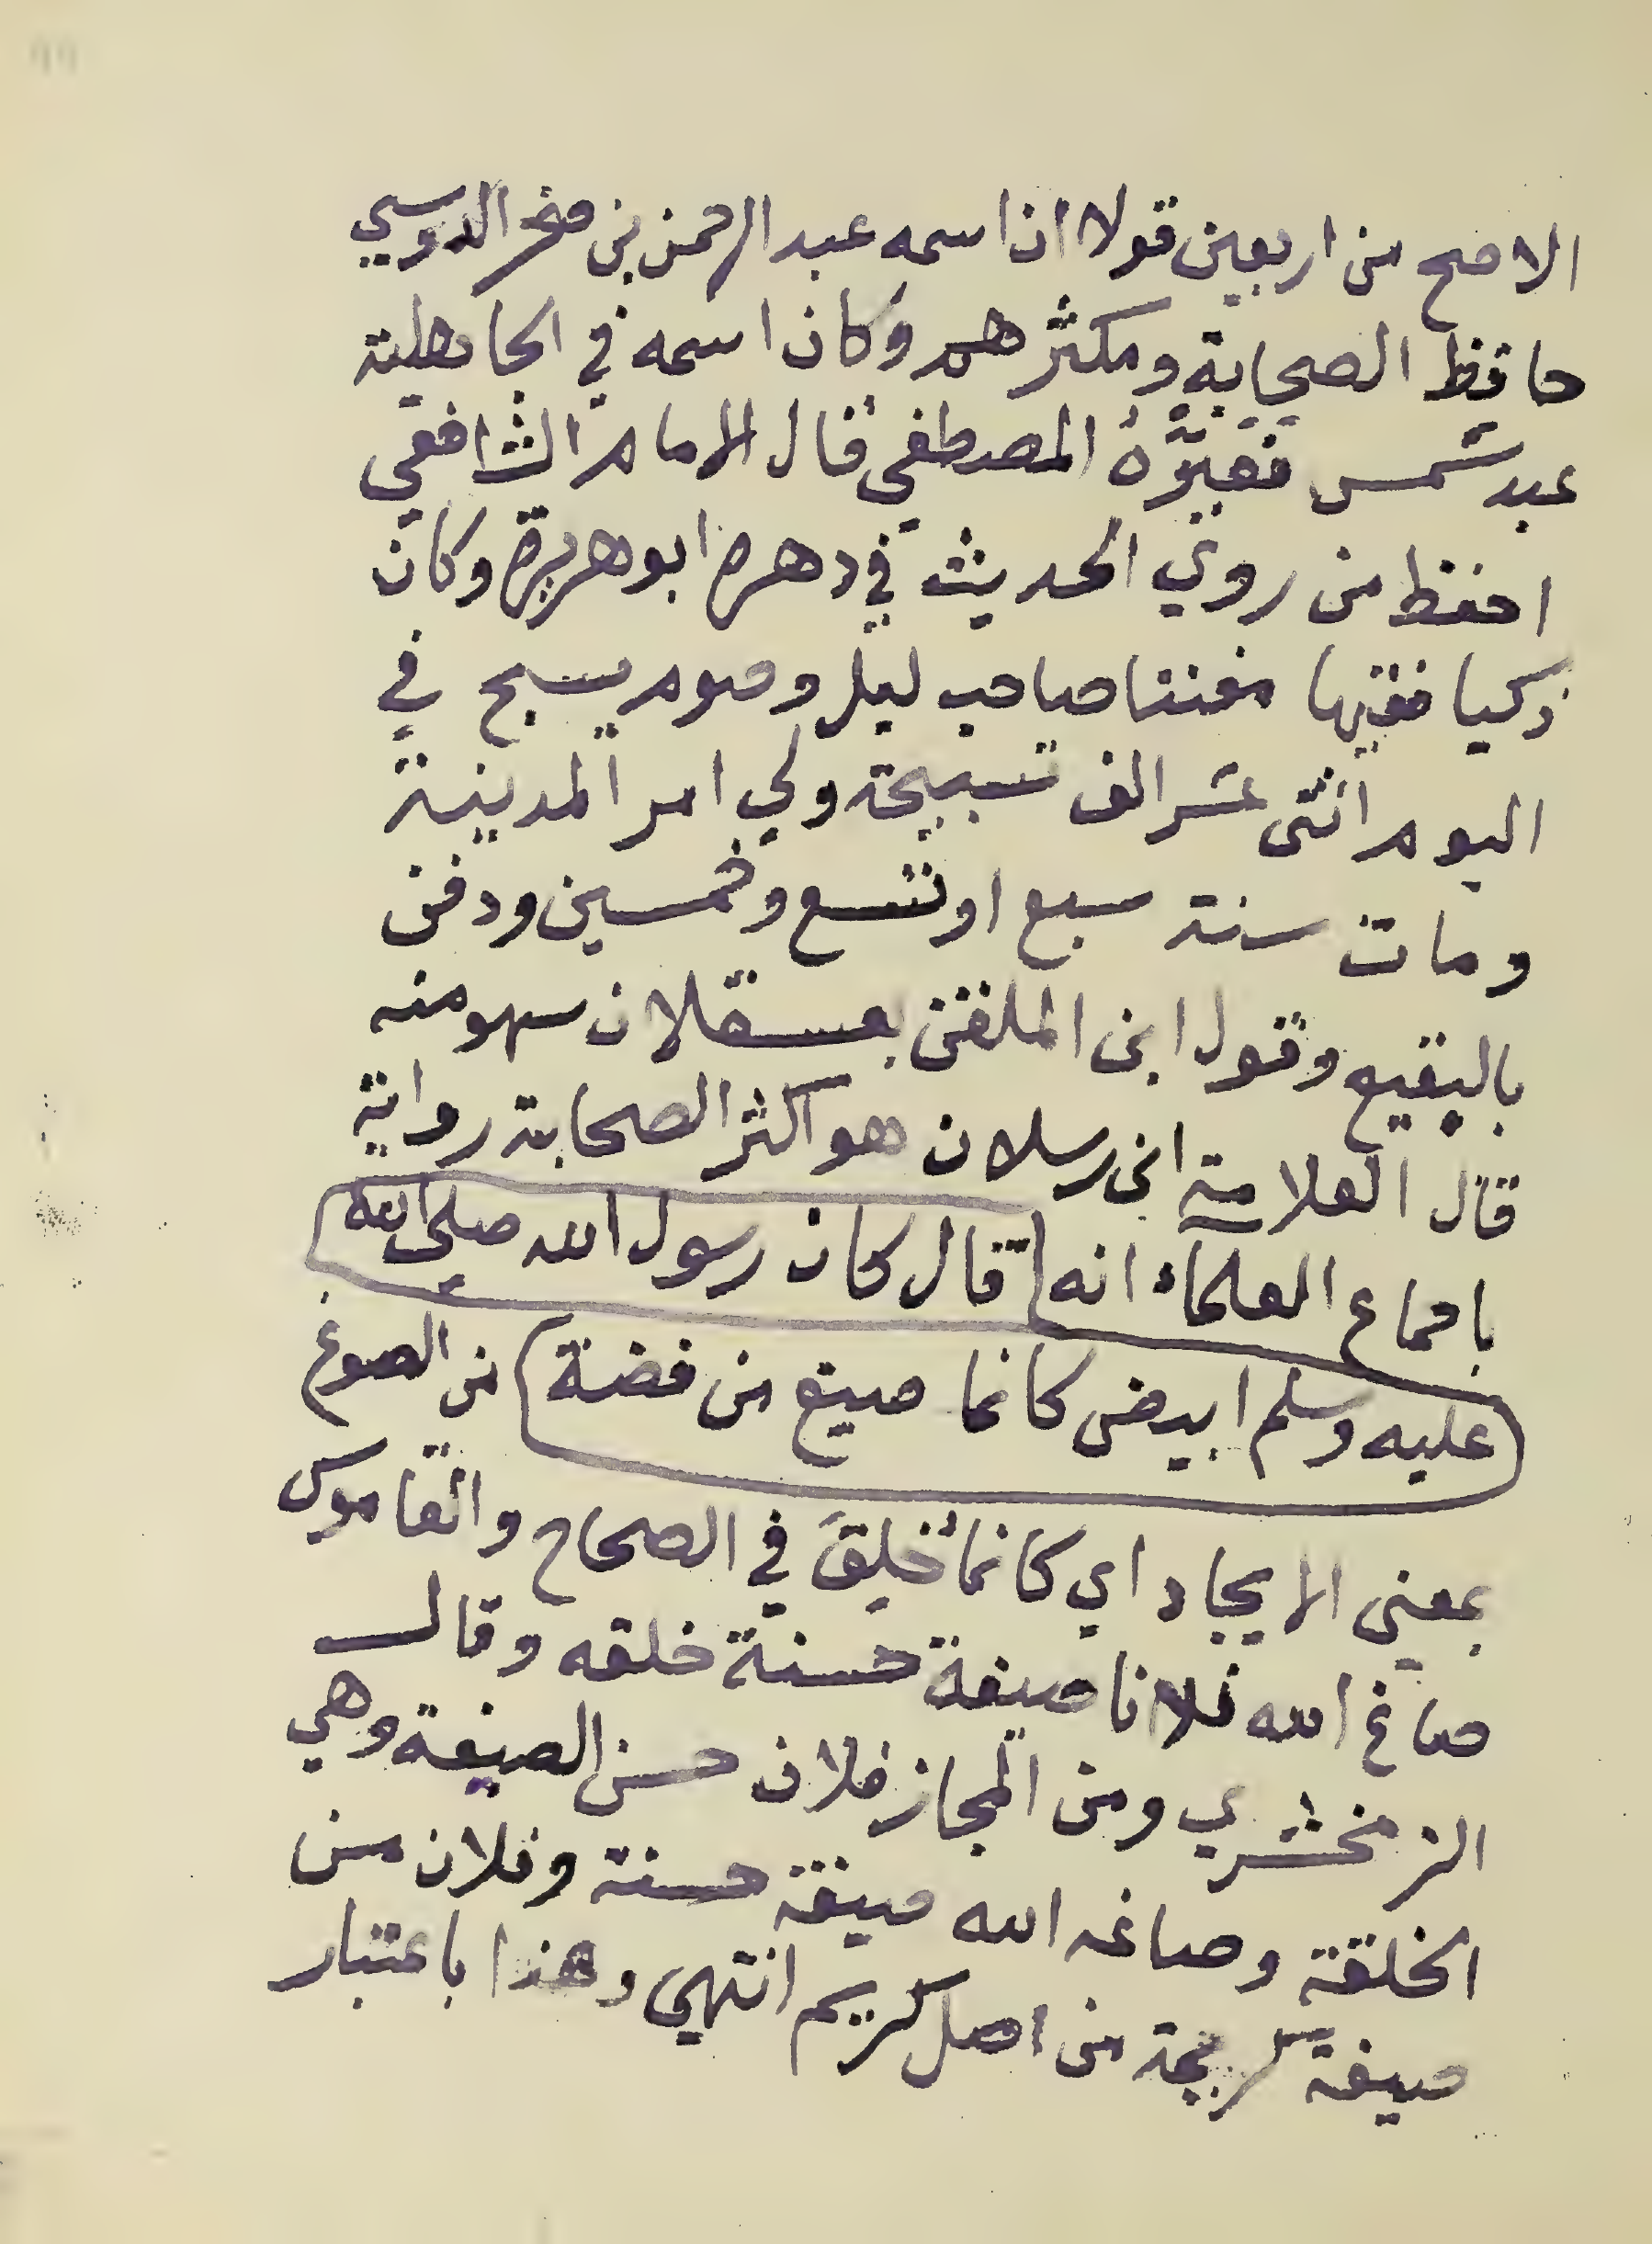 الاصح من اربعين قولا ان اسمه عبد الرحمن بن صخر الدوسي
حافظ الصحابة ومكثرهم وكان اسمه في الجاهلية
عبد شمس فغيَّرَهُ المصطفي قال الامام الشافعي
احفظ من روي الحديث في دهره ابو هريرة وكان
ذكيا فقيها مفتنا صاحب ليل وصوم يسبح في
اليوم اثنى عشر الف تسبيحة ولي امر المدينة
ومات سنة سبع او تسع وخمسين ودفن
بالبقيع وقول ابن الملقن بعسقلان سهو منه
قال العلامة ابن رسلان هو اكثر الصحابة رواية
باجماع العلماء انه قال كان رسول الله صلي الله
عليه وسلم ابيض كانما صيغ من فضة من الصوغ
بمعني الايجاد اي كانما خُلِقَ في الصحاح والقاموس
صاغ الله فلانا صيغة حسنة خلقه وقال
الزمخشري ومن المجاز فلان حسن الصيغة وهي
الخلقة وصاغه الله صيغة حسنة وفلان من
صيغة كريمة من اصل كريم انتهي وهذا باعتبار